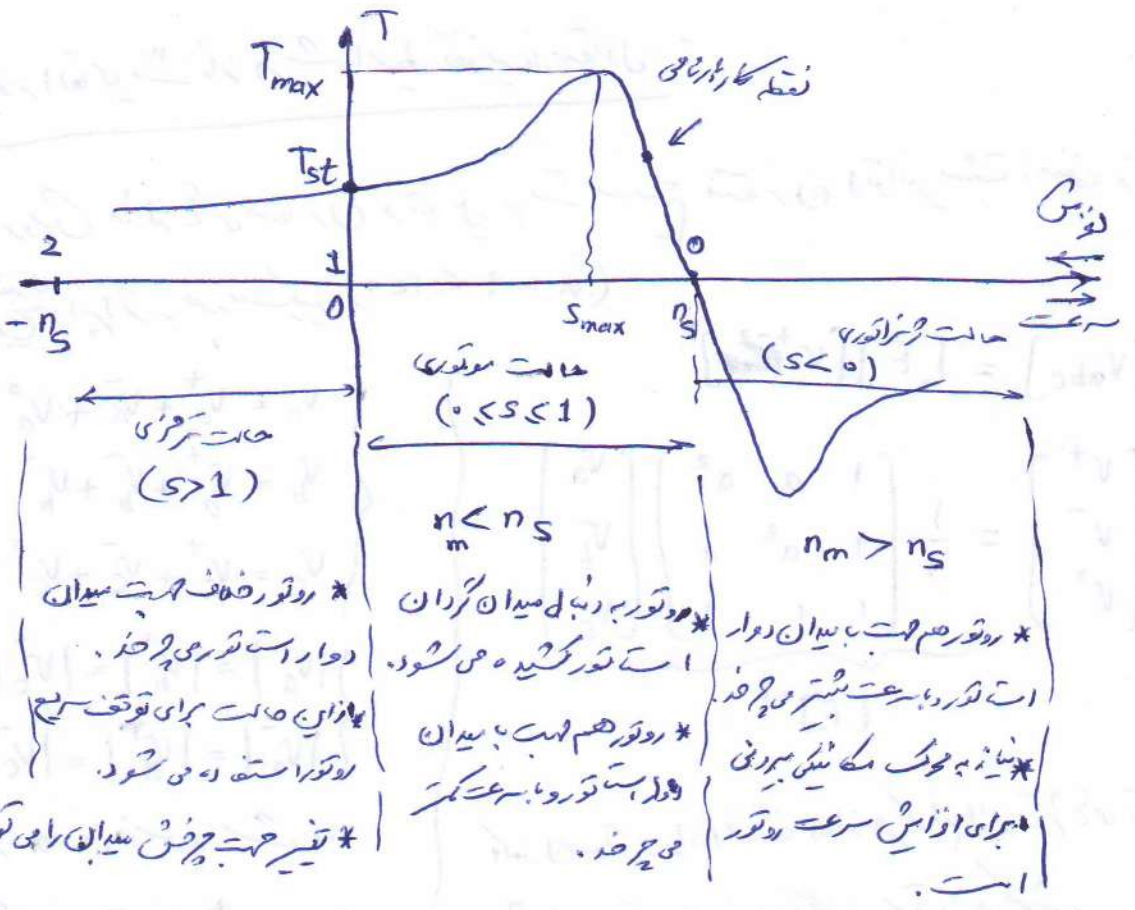 T
T max
نقطه کار نامی
T st
لغزش
2
1
0
- n s
0
s max
n s
سرعت
حالت ژنراتوری
(s<0)
حالت موتوری
(0 ≤ s ≤ 1)
حالت ترمزی
(s>1)
n m < n s
n m > n s
* روتور خلاف جهت میدان
دوار استاتور می چرخد.
* از این حالت برای توقف سریع
روتور استفاده می شود.
* تغییر جهت چرخش میدان را می تو
* روتور به دنبال میدان گردان
استاتور کشیده می شود.
* روتور هم جهت با میدان
دوار استاتور و با سرعت کمتر
می چرخد.
* روتور هم جهت با میدان دوار
استاتور و با سرعت بیشتر می چرخد.
* نیاز به محرک مکانیکی بیرونی
برای افزایش سرعت روتور
است.